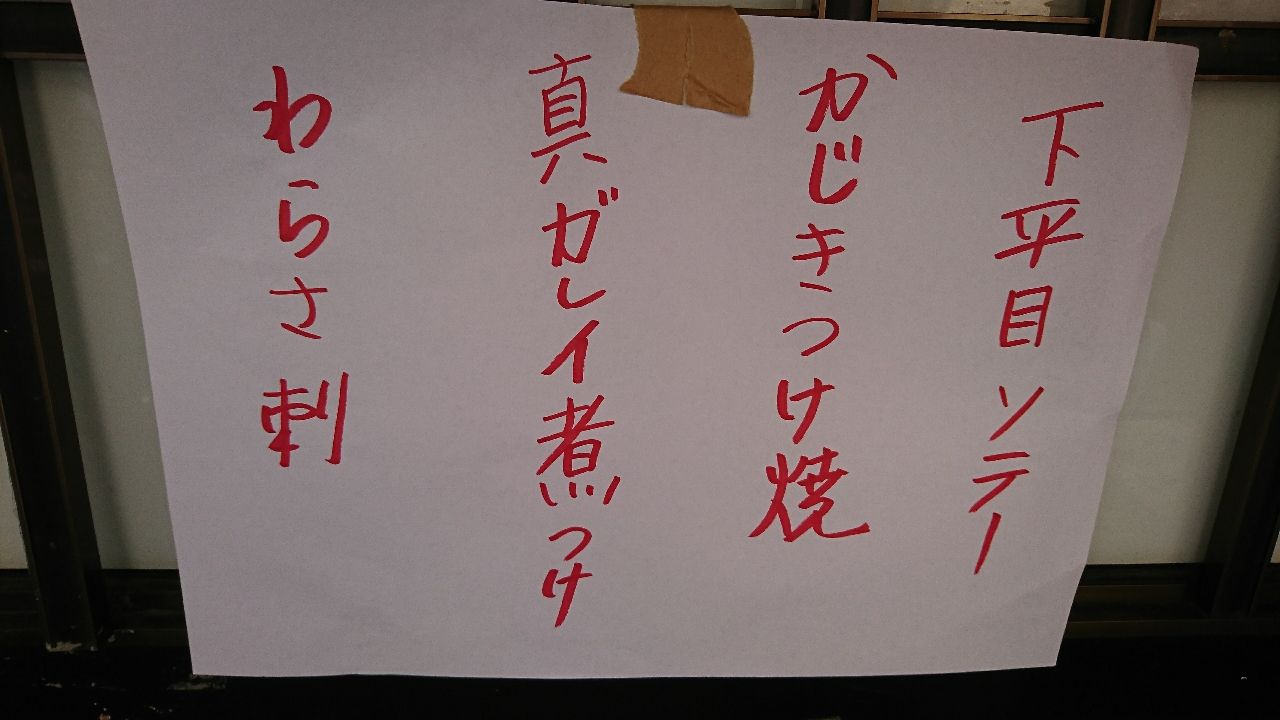 下平目ソテー
かじきつけ焼
真ガレイ煮つけ
わらさ刺